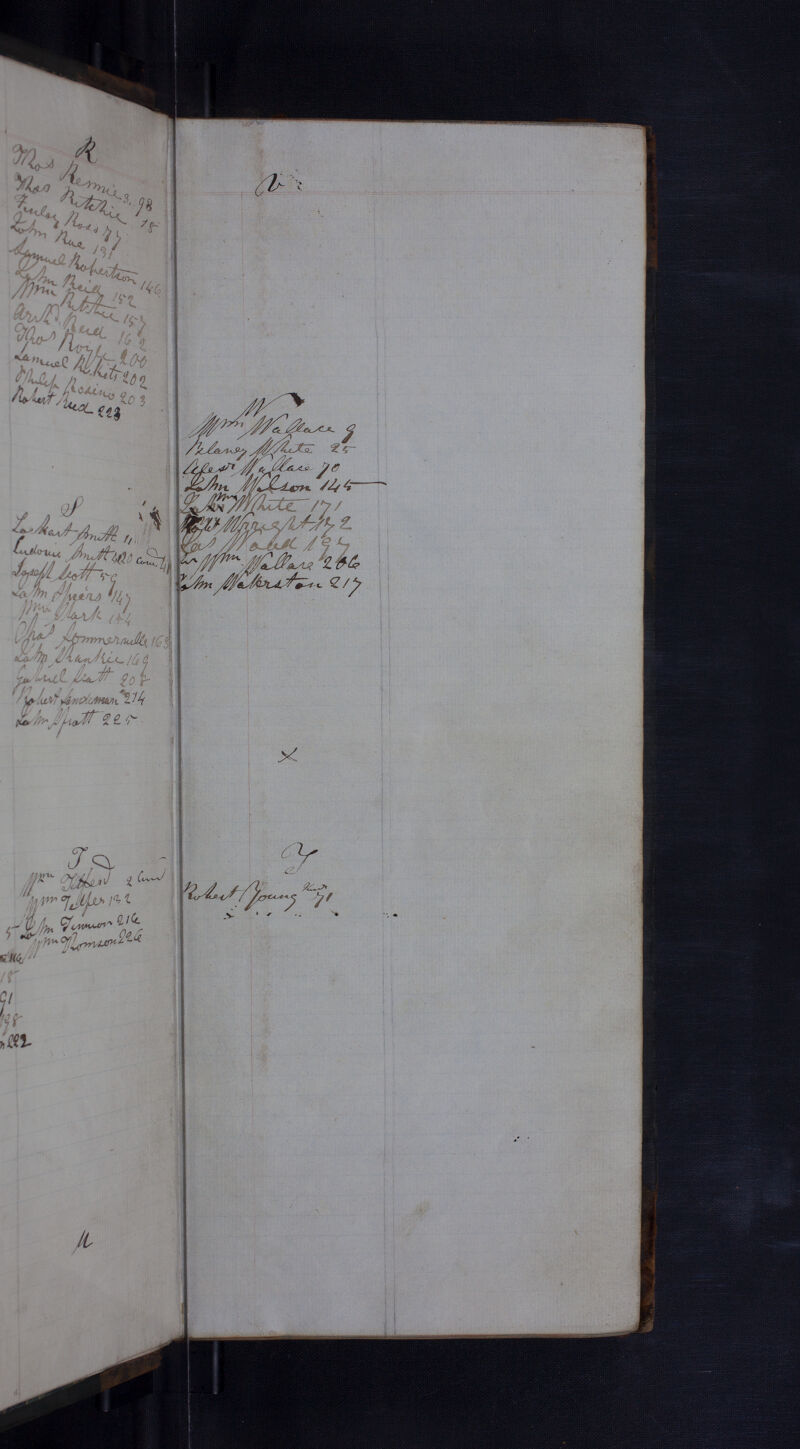 R
Thos Rennie 3. 98
Thos Ritchie 15
Finlay Ross 77
John Rae 131
Samuel Robertson 146
John Reid 152
Wm Ritchie 157
Arch Reid 162
Thos 200
Samuel 202
Philip Rosino 203
Robert Reid 223
S
Lockart Smith 11
Ludovic Smith
Joseph Scott 59
John Spiers 147
Wm Stark 154
Thos Sommerville 163
John Shankie 169
Gabriel Scatt 208
Robert Sandeman 214
John Spratt 225
T
Wm 2
Wm Telfer 132
John Tennion 216
Wm Thomson 226
18
91
198
222
U
V
W
Wm Wallace 9
Blaney White 25
Alexr Wallace 70
John Wilson 145
Wm White 171
Wright 172
Jas Woud 197
Wm Wallace 206
John Wakerston 217
X
Y
Robert Young 71